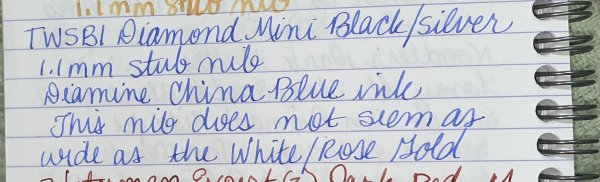 1.1mm stub nib
TWSBI Diamond Mini Black/silver
1.1mm stub nib
Diamine China Blue ink
This nib does not seem as
wide as the White/Rose Gold
Dark Red